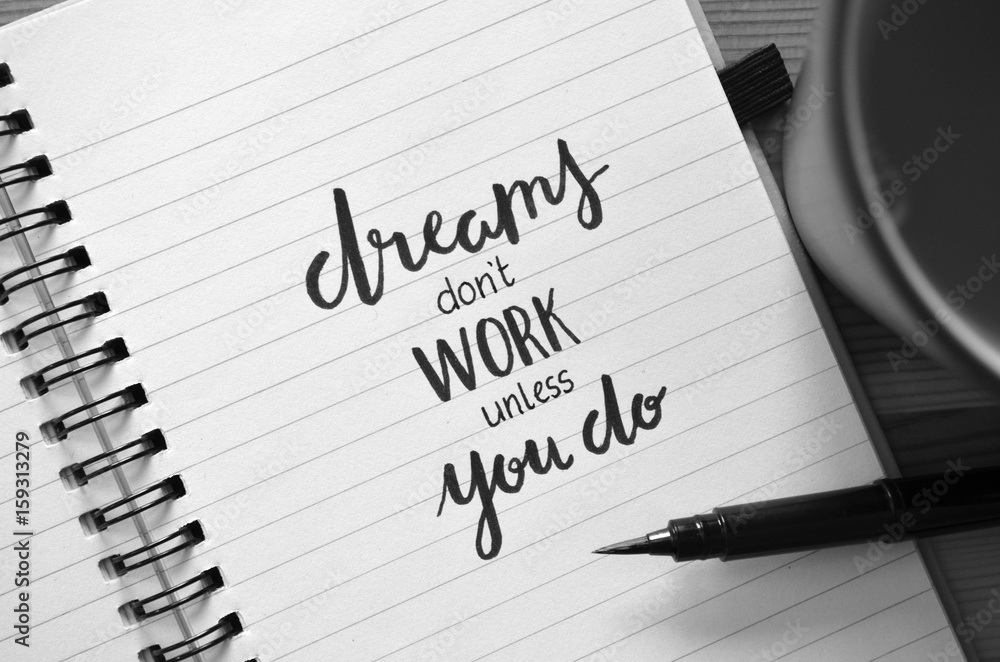 dreams
don't
WORK
unless
you do
Adobe Stock | #159313279